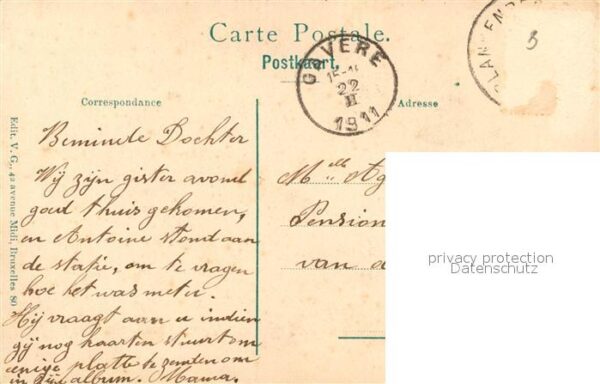 Carte Postale.
Postkaart.
GAVERE
15-
22
II
1911
3
Correspondance
Adresse
Beminde Dochter
Wij zijn gister avond
goed thuis gekomen,
en Antoine stond aan
de statie, om te vragen
hoe het was meter.
Hij vraagt aan u indien
gij nog kaarten stuurt om
eenige platte te zenden om
in zijn album. Mama.
Melle Ag
Pension
van d
Edit. V. G., 42 avenue Midi, Bruxelles 80
privacy protection
Datenschutz